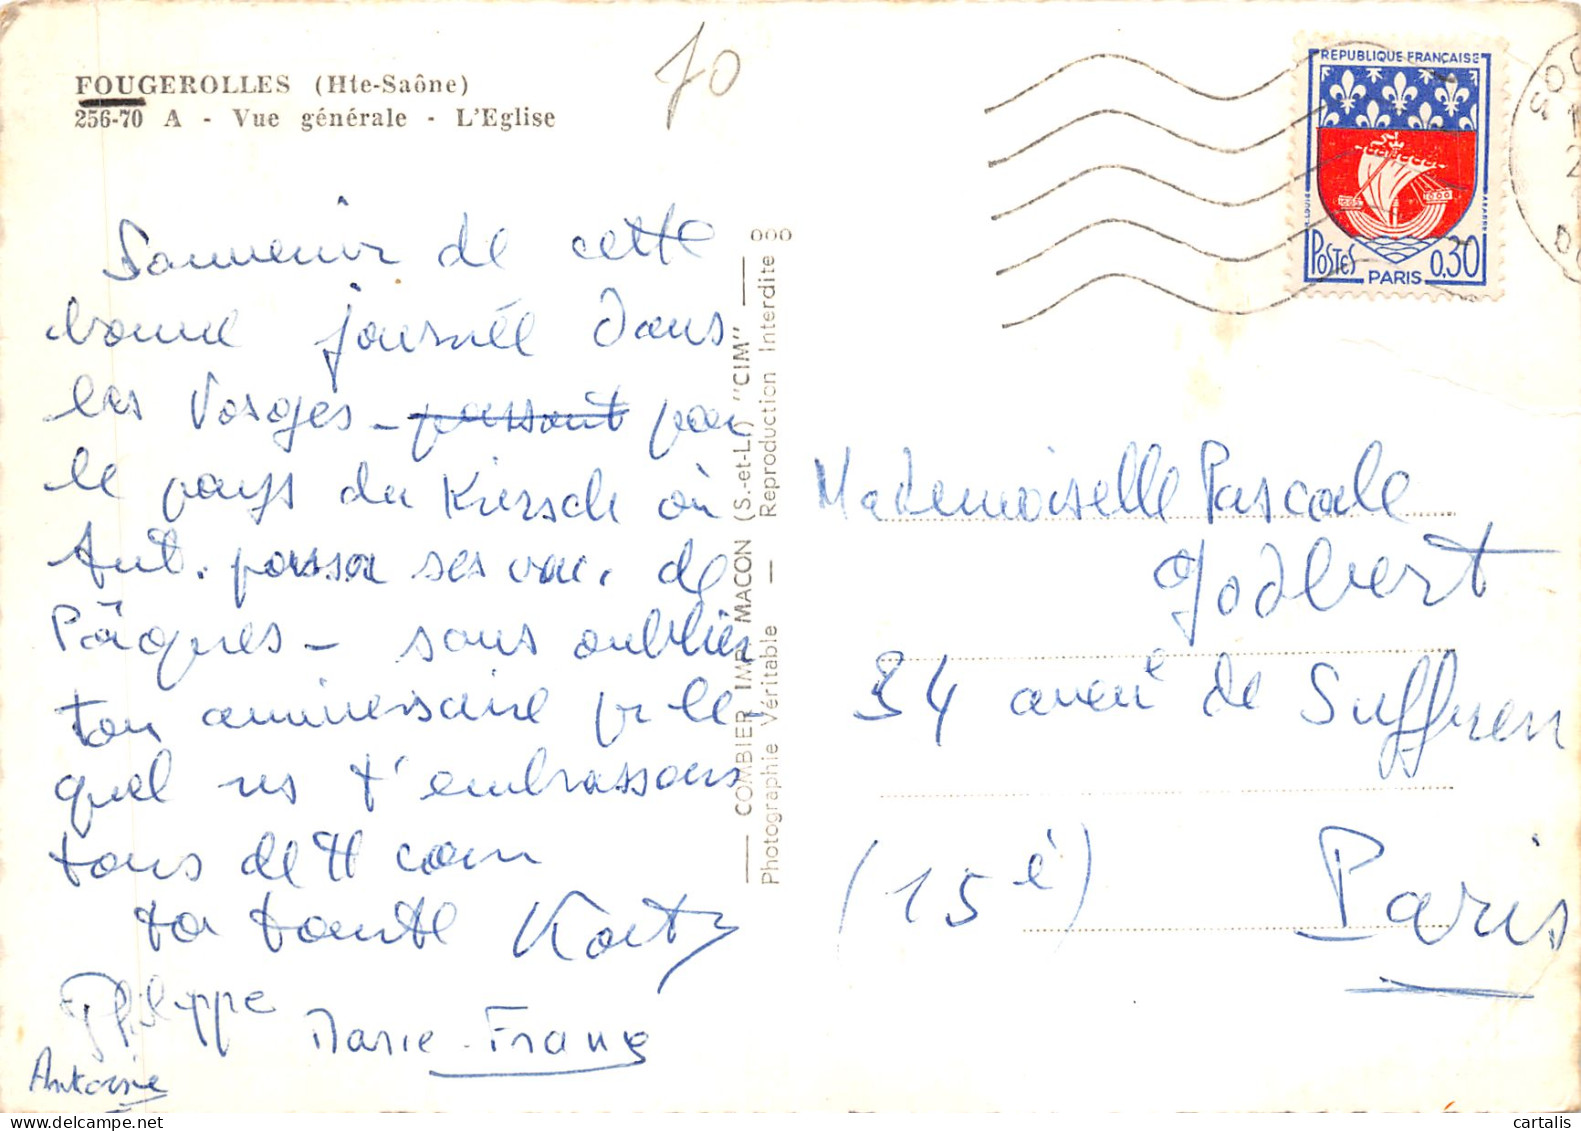 FOUGEROLLES (Hte-Saône)
256-70 A - Vue générale - L'Eglise
70
Souvenir de cette
bonne journée dans
les Vosges - passant par
le pays du Kirsch où
Ant. passa ses vac. de
Pâques - sans oublier
ton anniversaire pr le-
quel ns t'embrassons
tous de tt cœur
ta tante Katy
Philippe
Marie-Franç
Antoine
COMBIER IMP. MACON (S.-et-L.) "CIM"
Photographie Véritable — Reproduction Interdite
REPUBLIQUE FRANÇAISE
POSTES PARIS 0,30
Mademoiselle Pascale
Godbert
34 avenue de Suffren
(15è) Paris
cartalis